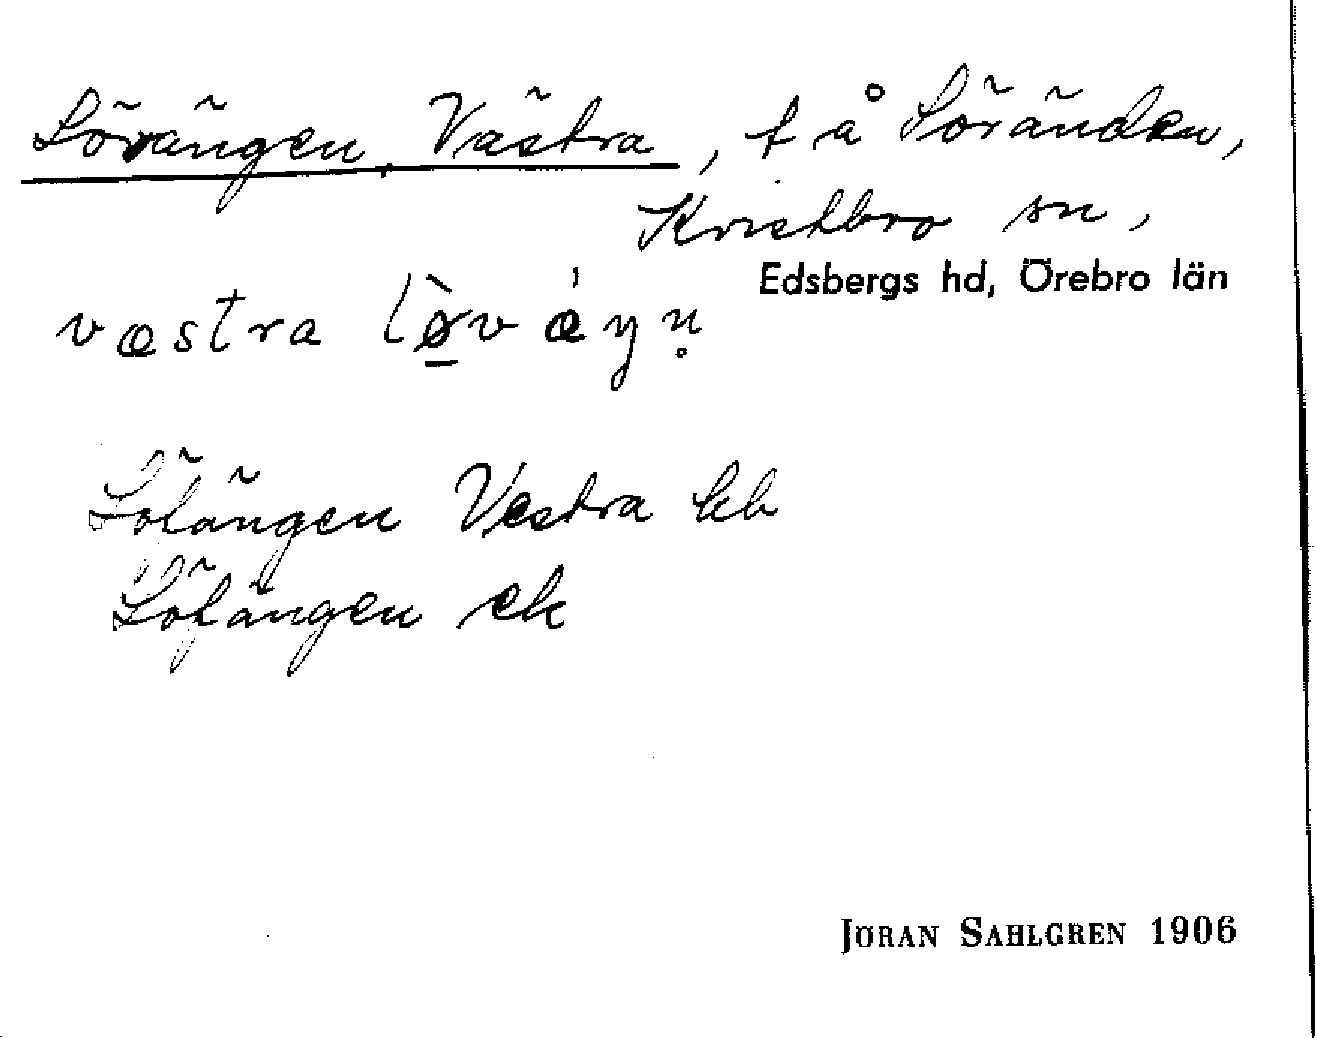 Lövängen, Västra, t å Söränden,
Kvistbro sn,
Edsbergs hd, Örebro län
væstra lø̀vǽŋn̥
Löfängen Vestra hb
Löfängen ek
JÖRAN SAHLGREN 1906